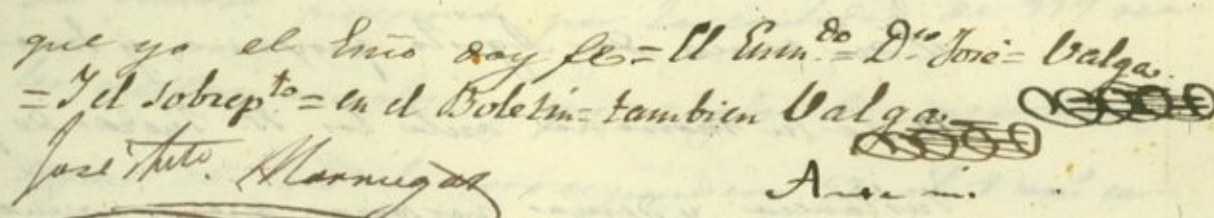 que yo el Essno doy fe = El Enmdo = Dn José = Valga.
= Y el sobrepto = en el Boletin = tambien Valga
José Anto. Marrugat
Ante mi.